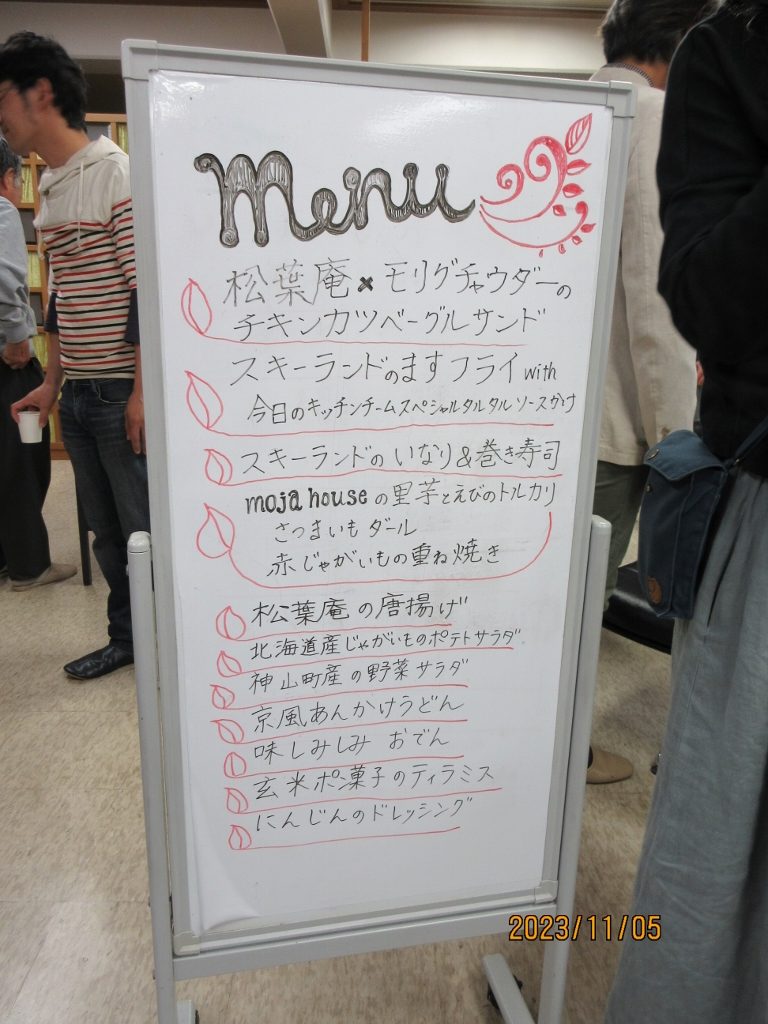 menu
松葉庵×モリグチャウダーの
チキンカツベーグルサンド
スキーランドのますフライ with
今日のキッチンチームスペシャルタルタルソースがけ
スキーランドの いなり&巻き寿司
moja house の里芋とえびのトルカリ
さつまいもダール
赤じゃがいもの重ね焼き
松葉庵の唐揚げ
北海道産じゃがいものポテトサラダ
神山町産の野菜サラダ
京風あんかけうどん
味しみしみ おでん
玄米ポン菓子のティラミス
にんじんのドレッシング
2023/11/05